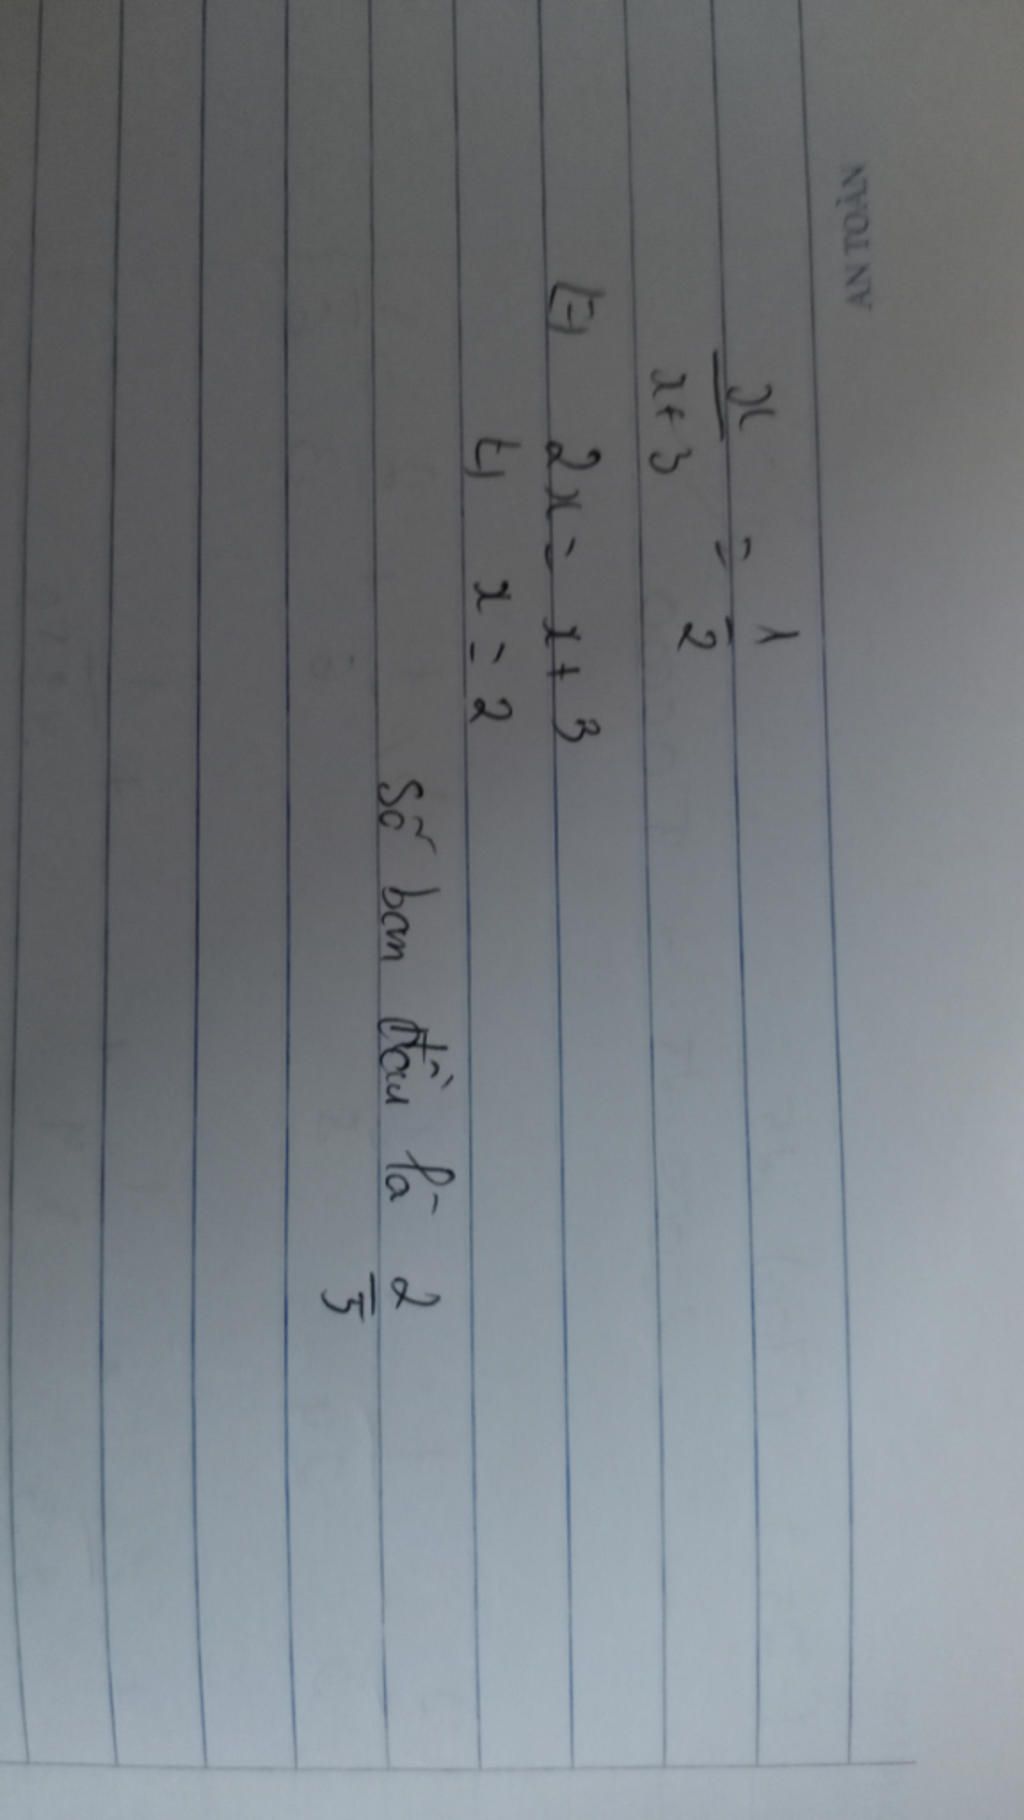 AN TOÀN
x/(x+3) = 1/2
⇔ 2x = x + 3
⇔ x = 2
Số ban đầu là 2/5